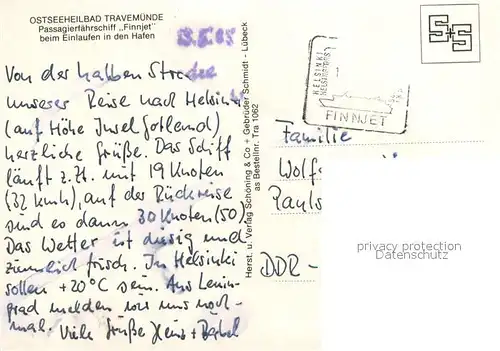 OSTSEEHEILBAD TRAVEMÜNDE
Passagierfährschiff „Finnjet"
beim Einlaufen in den Hafen
Von der halben Strecke
unserer Reise nach Helsinki
(auf Höhe Insel Gotland)
herzliche Grüße. Das Schiff
läuft z.Zt. mit 19 Knoten
(32 kmh), auf der Rückreise
sind es dann 30 Knoten (50).
Das Wetter ist diesig und
ziemlich frisch. In Helsinki
sollen +20°C sein. Aus Lenin-
grad melden wir uns noch-
mal. Viele Grüße Heinz + Bärbel
Herst. u. Verlag Schöning & Co + Gebrüder Schmidt - Lübeck
as Bestellnr. Tra 1062
HELSINKI
FINNJET
S+S
Familie
Wolf-
Pauls
DDR-
privacy protection
Datenschutz